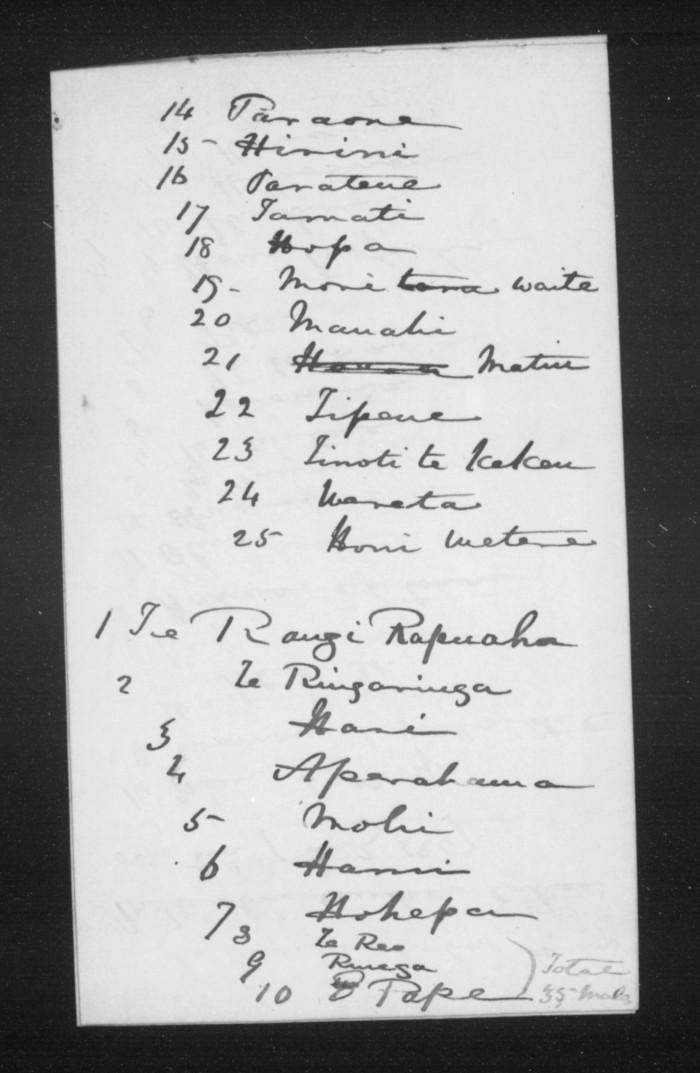 14 Paraone
15 - Hirini
16 Paratene
17 Tamati
18 Hopa
19 - Moni tana waite
20 Manahi
21 Matiu
22 Tipene
23 Tinoti te Kekeu
24 Wereta
25 Honi Wetene
1 Te Rangi Rapuaha
2 Te Ringaringa
3 Hani
4 Aperahama
5 Mohi
6 Hami
7 Hohepa
8 Te Reo
9 Ruega
10 Pape
Total
35 Males